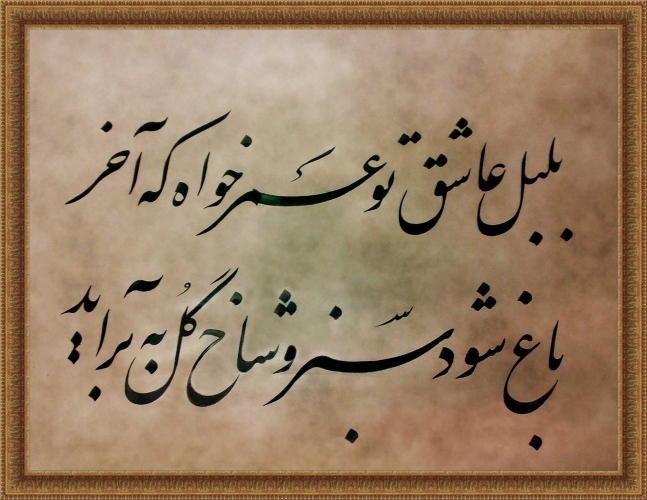 بلبل عاشق تو عمر خواه که آخر
باغ شود سبز و شاخ گُل به برآید